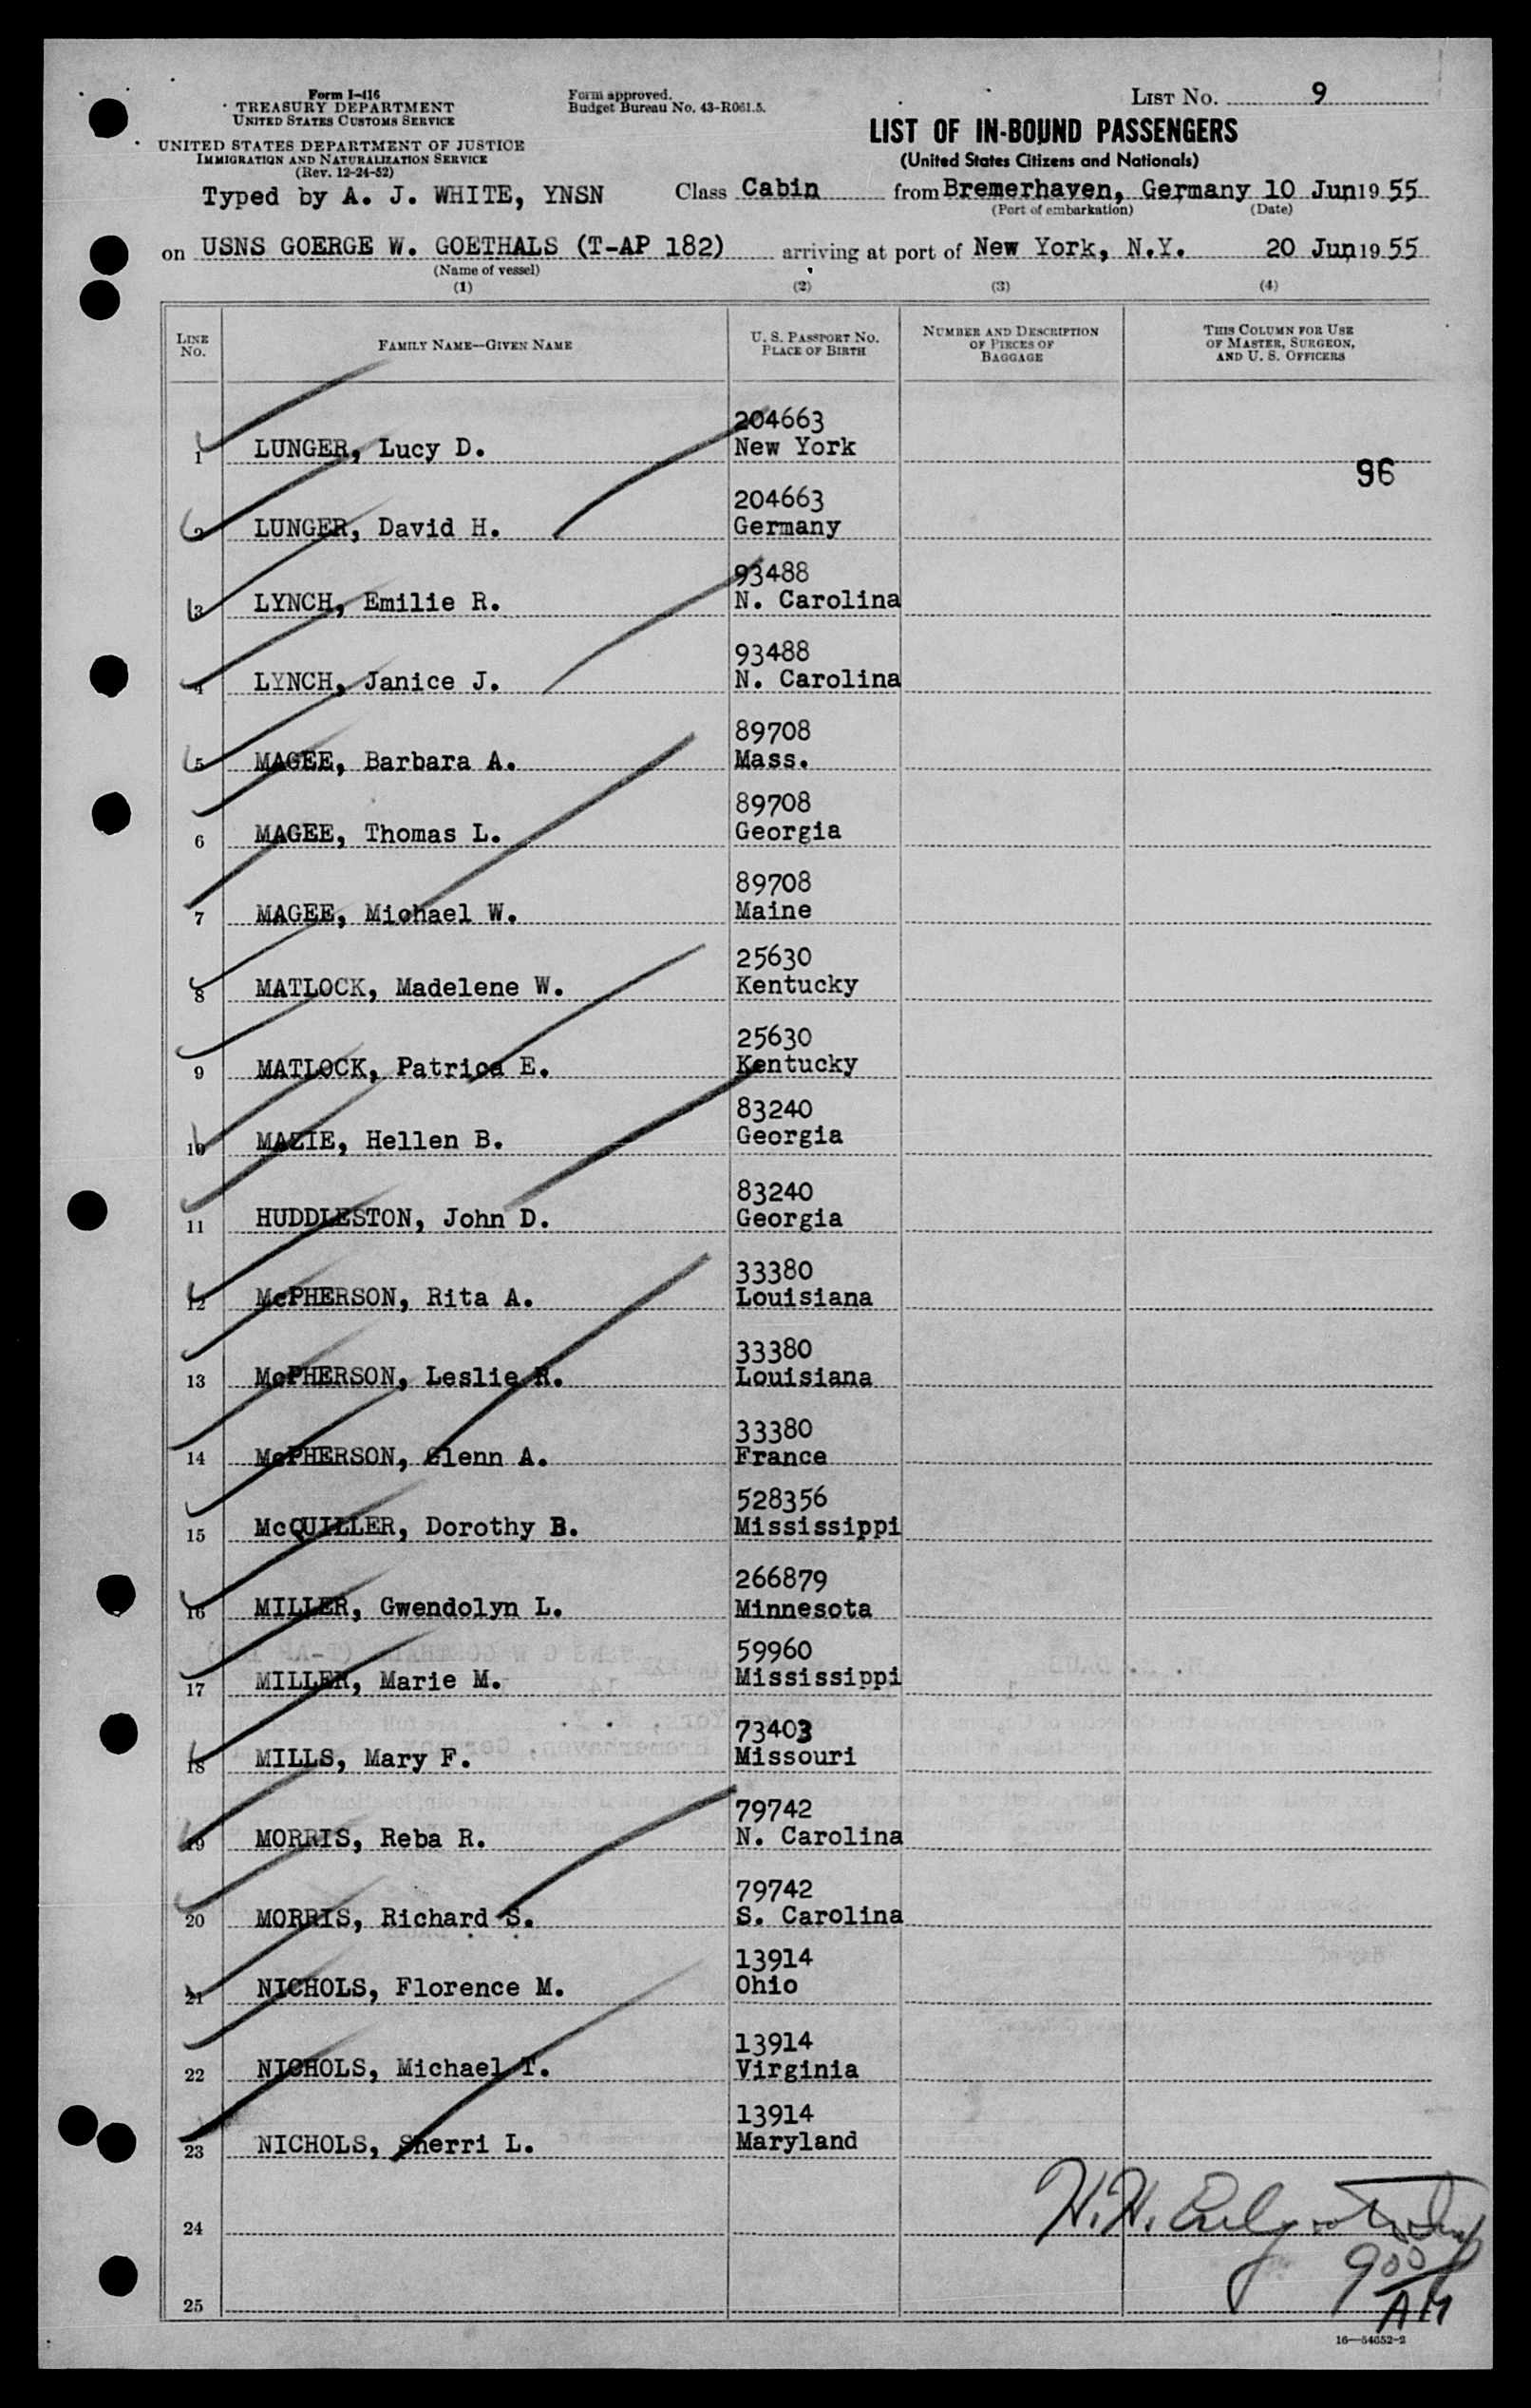 Form I-416
TREASURY DEPARTMENT
UNITED STATES CUSTOMS SERVICE
UNITED STATES DEPARTMENT OF JUSTICE
IMMIGRATION AND NATURALIZATION SERVICE
(Rev. 12-24-52)
Form approved.
Budget Bureau No. 43-R061.5.
LIST NO. 9
LIST OF IN-BOUND PASSENGERS
(United States Citizens and Nationals)
Typed by A. J. WHITE, YNSN Class Cabin from Bremerhaven, Germany 10 Jun, 1955
(Port of embarkation) (Date)
on USNS GOERGE W. GOETHALS (T-AP 182) arriving at port of New York, N.Y. 20 Jun, 1955
(Name of vessel)
(1) (2) (3) (4)
LINE NO. FAMILY NAME—GIVEN NAME U. S. PASSPORT NO. PLACE OF BIRTH NUMBER AND DESCRIPTION OF PIECES OF BAGGAGE THIS COLUMN FOR USE OF MASTER, SURGEON, AND U. S. OFFICERS
204663
1 LUNGER, Lucy D. New York
96
204663
2 LUNGER, David H. Germany
93488
3 LYNCH, Emilie R. N. Carolina
93488
4 LYNCH, Janice J. N. Carolina
89708
5 MAGEE, Barbara A. Mass.
89708
6 MAGEE, Thomas L. Georgia
89708
7 MAGEE, Michael W. Maine
25630
8 MATLOCK, Madelene W. Kentucky
25630
9 MATLOCK, Patrica E. Kentucky
83240
10 MAZIE, Hellen B. Georgia
83240
11 HUDDLESTON, John D. Georgia
33380
12 McPHERSON, Rita A. Louisiana
33380
13 McPHERSON, Leslie R. Louisiana
33380
14 McPHERSON, Glenn A. France
528356
15 McQUILLER, Dorothy B. Mississippi
266879
16 MILLER, Gwendolyn L. Minnesota
59960
17 MILLER, Marie M. Mississippi
73403
18 MILLS, Mary F. Missouri
79742
19 MORRIS, Reba R. N. Carolina
79742
20 MORRIS, Richard S. S. Carolina
13914
21 NICHOLS, Florence M. Ohio
13914
22 NICHOLS, Michael T. Virginia
13914
23 NICHOLS, Sherri L. Maryland
H. H.
24
900
25
AM
16—54652-2